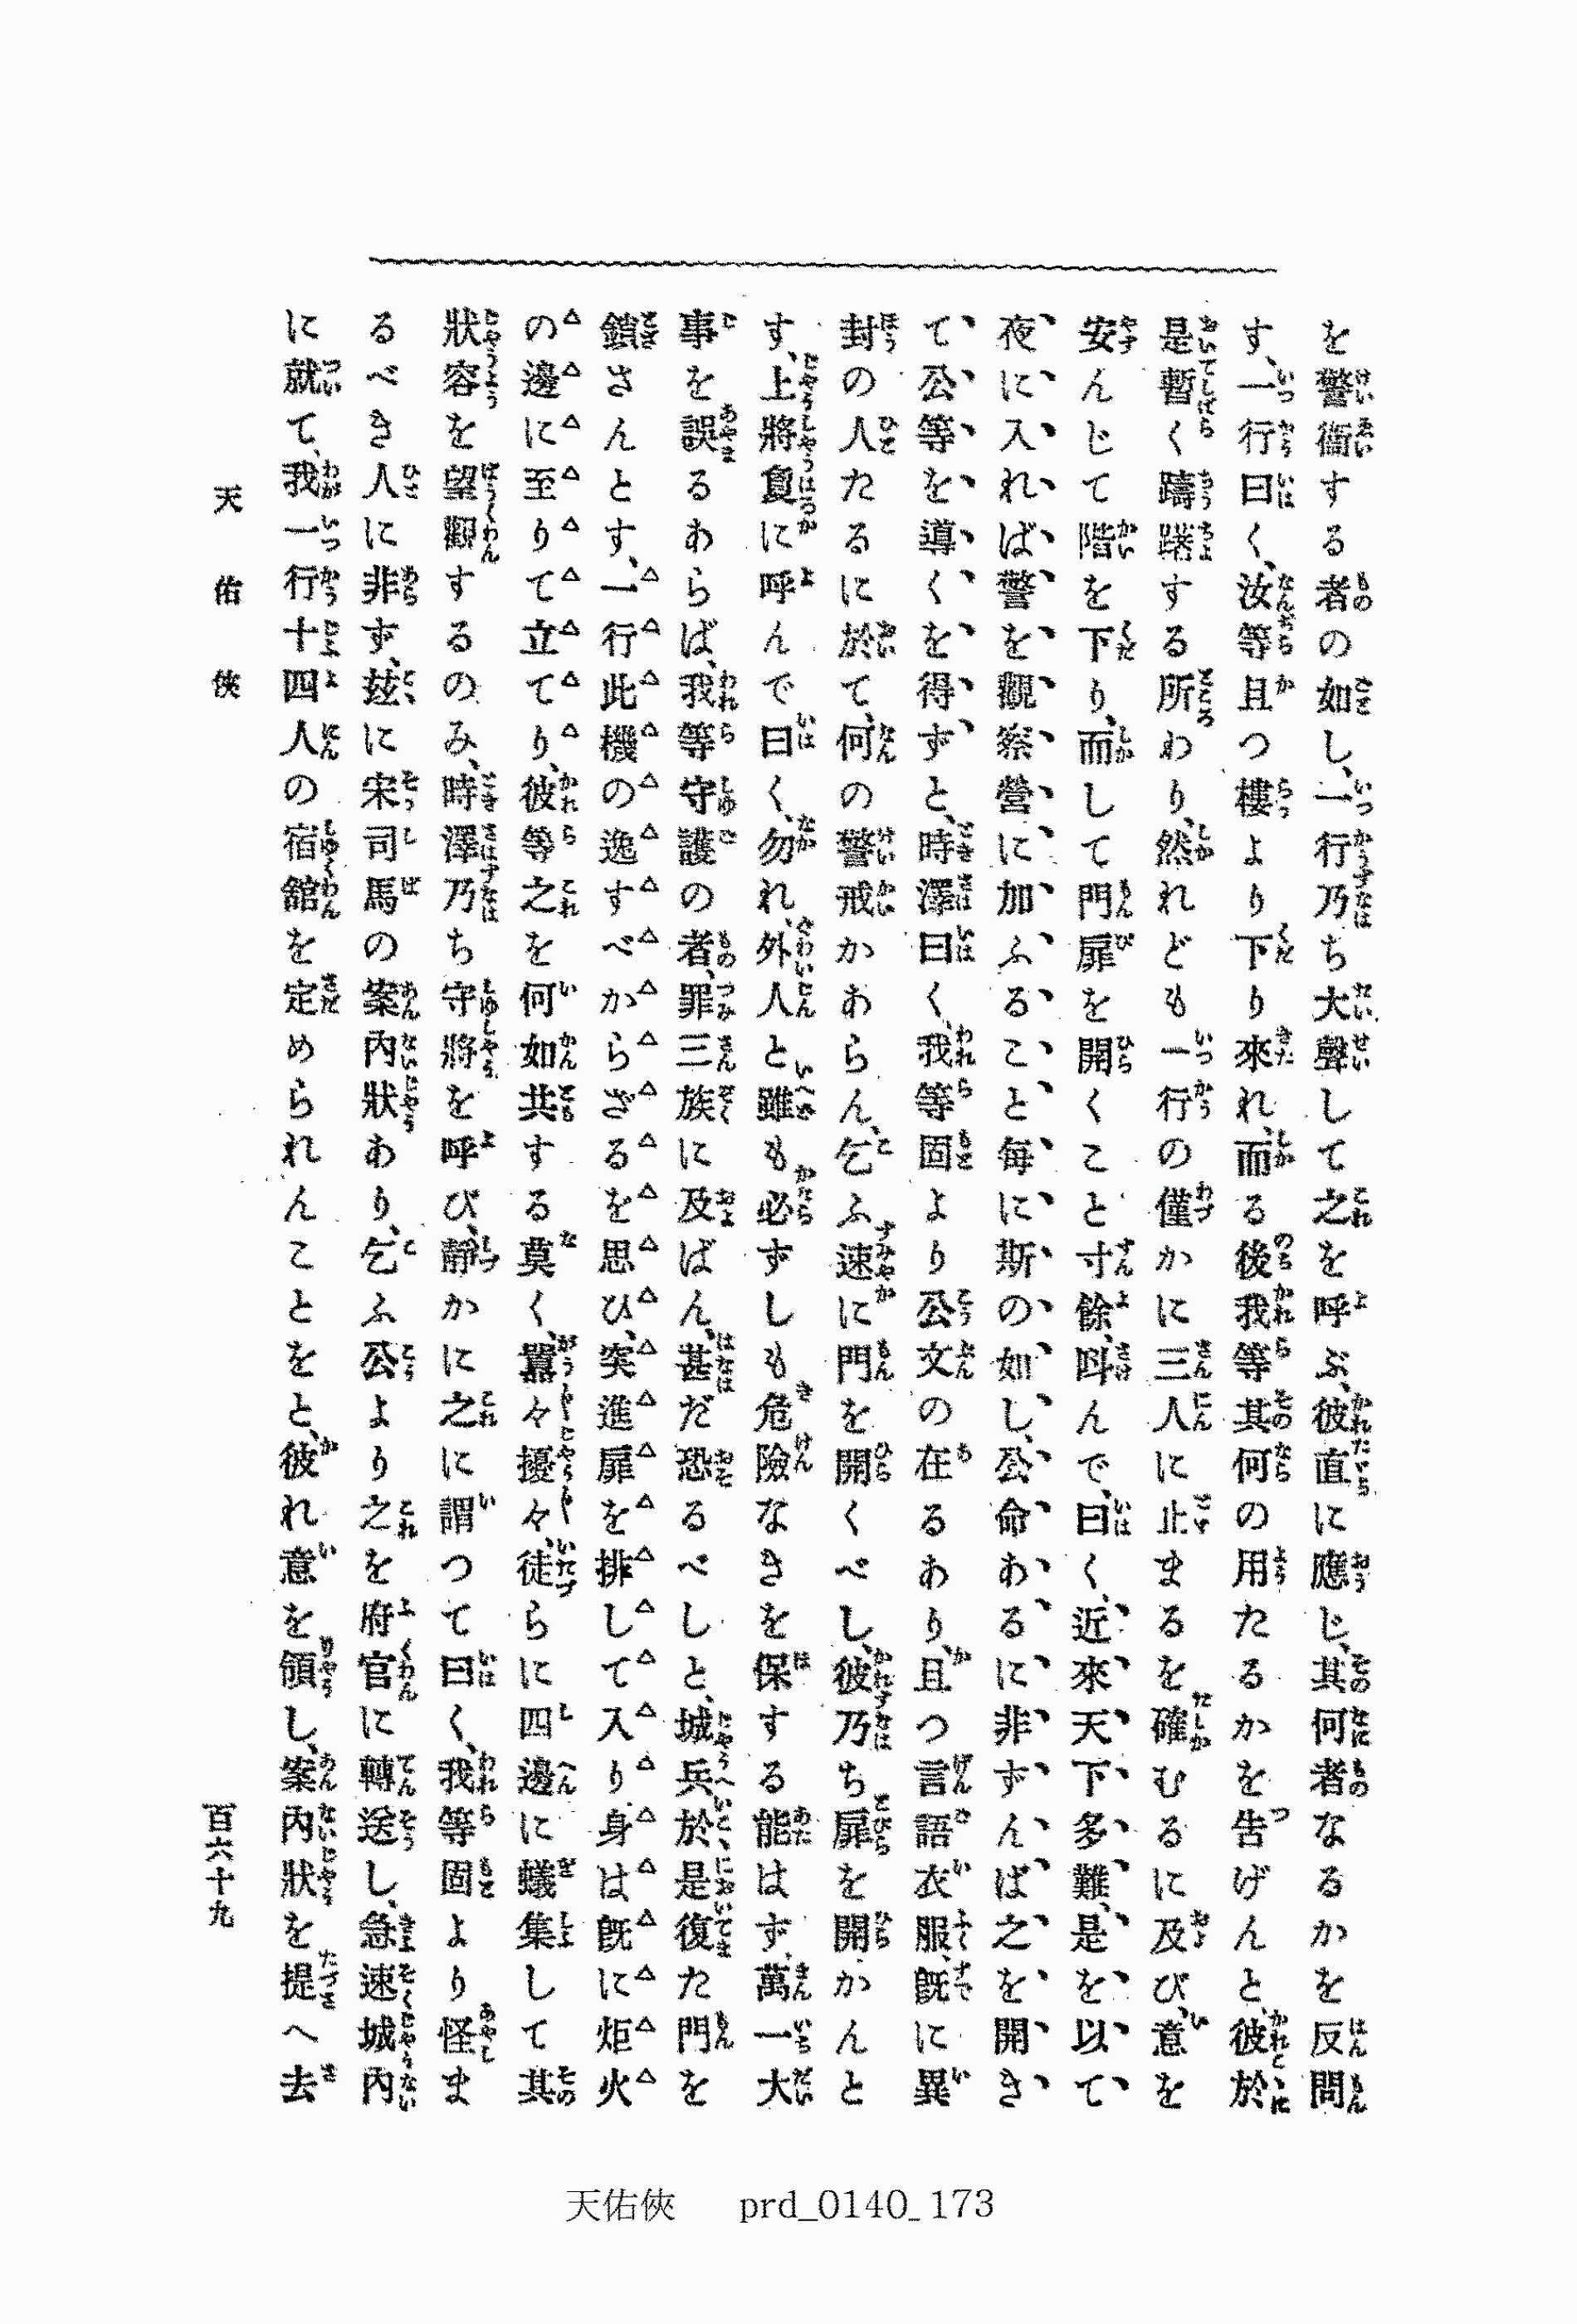 を警衞する者の如し、一行乃ち大聲して之を呼ぶ、彼直に應じ、其何者なるかを反問
す、一行曰く、汝等且つ樓より下り來れ、而る後我等其何の用たるかを告げんと、彼於
是暫く躊躇する所わり、然れども一行の僅かに三人に止まるを確むるに及び、意を
安んじて階を下り、而して門扉を開くこと寸餘、呌んで曰く、近來天下多難、是を以て
夜に入れば警を觀察營に加ふること毎に斯の如し、公命あるに非ずんば之を開き
て公等を導くを得ずと、時澤曰く、我等固より公文の在るあり、且つ言語衣服、既に異
封の人たるに於て、何の警戒かあらん、乞ふ速に門を開くべし、彼乃ち扉を開かんと
す、上將負に呼んで曰く、勿れ、外人と雖も必ずしも危險なきを保する能はず、萬一大
事を誤るあらば、我等守護の者、罪三族に及ばん、甚だ恐るべしと、城兵於是復た門を
鎖さんとす、一行此機の逸すべからざるを思ひ、突進扉を排して入り身は既に炬火
の邊に至りて立てり、彼等之を何如共する莫く、囂々擾々、徒らに四邊に蟻集して其
狀容を望觀するのみ、時澤乃ち守將を呼び、靜かに之に謂つて曰く、我等固より怪ま
るべき人に非ず、玆に宋司馬の案內狀あり、乞ふ公より之を府官に轉送し、急速城內
に就て、我一行十四人の宿舘を定められんことをと、彼れ意を領し、案內狀を提へ去
天佑俠
百六十九
天佑俠 prd_0140_173